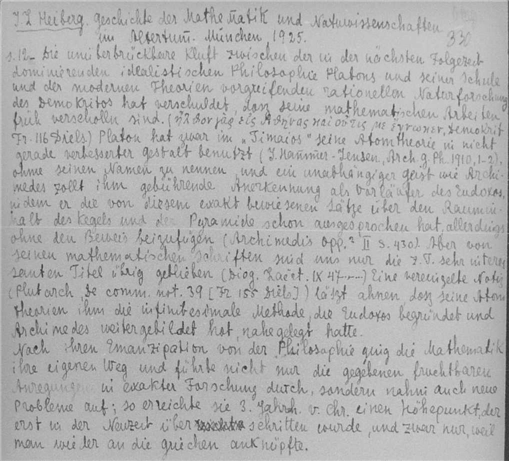 J. L. Heiberg, Geschichte der Mathematik und Naturwissenschaften
im Altertum. München, 1925.
S. 12. Die unüberbrückbare Kluft zwischen der in der nächsten Folgezeit
dominierenden idealistischen Philosophie Platons und seiner Schule
und der modernen Theorien vorgreifenden rationellen Naturforschung
des Demokritos hat verschuldet, dass seine mathematischen Arbeiten
früh verschollen sind. (Demokrit
Fr. 116 Diels) Platon hat zwar im "Timaios" seine Atomtheorie in nicht
gerade verbesserter Gestalt benutzt (J. Hammer-Jensen, Arch. g. Ph. 1910, 1-2),
ohne seinen Namen zu nennen, und ein unabhängiger Geist wie Archi-
medes zollt ihm gebührende Anerkennung als Vorläufer des Eudoxos,
indem er die von diesem exakt bewiesenen Sätze über den Raumin-
halt des Kegels und der Pyramide schon ausgesprochen hat, allerdings
ohne den Beweis beizufügen (Archimedis opp.² II S. 430). Aber von
seinen mathematischen Schriften sind uns nur die z. T. sehr interes-
santen Titel übrig geblieben (Diog. Laiet. IX 47......) Eine vereinzelte Notiz
(Plutarch, De comm. not. 39 [Fr 155 Diels]) lässt ahnen, dass seine Atom
theorien ihm die infinitesimale Methode, die Eudoxos begründet und
Archimedes weitergebildet hat, nahegelegt hatte.
Nach ihren Emanzipation von der Philosophie ging die Mathematik
ihre eigenen Weg und führte nicht nur die gegebenen fruchtbaren
Anregungen in exakter Forschung durch, sondern nahm auch neue
Probleme auf; so erreichte sie 3. Jahrh. v. Chr. einen Höhepunkt, der
erst in der Neuzeit überschritten wurde, und zwar nur, weil
man wieder an die Griechen anknüpfte.